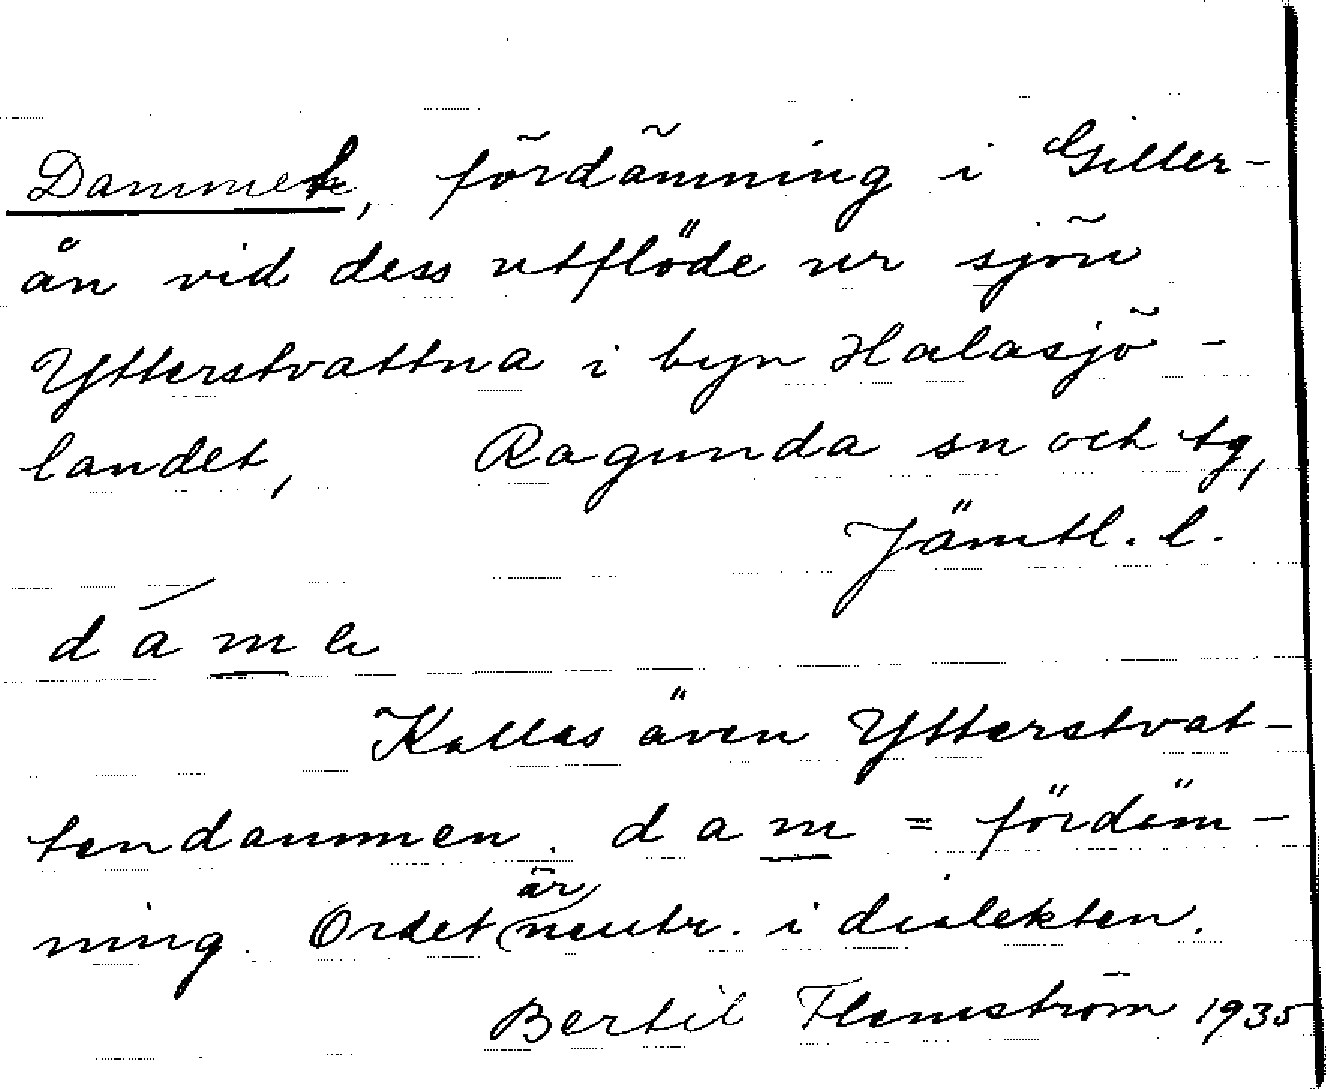 Dammet, fördämning i Giller-
ån vid dess utflöde ur sjön
Ytterstvattna i byn Halasjö-
landet, Ragunda sn och tg,
Jämtl. l.
d á m e
Kallas även Ytterstvat-
tendammen. d a m = fördäm-
ning. Ordet är neutr. i dialekten.
Bertil Flemström 1935